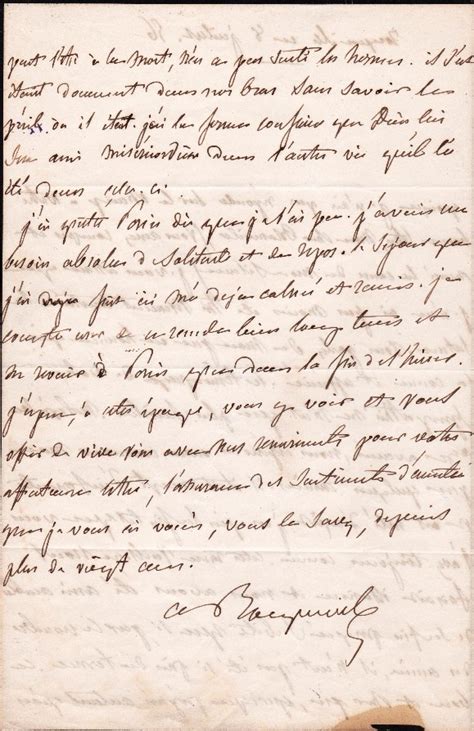 peut l'être à la mort, n'en a pas senti les
il s'est
éteint doucement dans nos bras sans savoir le
péril où il était. j'ai la ferme confiance que Dieu lui
sera miséricordieux dans l'autre vie qu'il l'a
été dans celle-ci.
j'ai quitté Paris dès que je l'ai pu. j'avais un
besoin absolu de solitude et de repos. le séjour que
j'ai déjà fait ici m'a déjà calmé et remis. je
compte y rester bien longtemps et
ne revenir à Paris que dans la fin de l'hiver.
j'espère, à cette époque, vous y voir et vous
offrir de vive voix avec mes remerciments pour votre
affectueuse lettre, l'assurance des sentiments d'amitié
que je vous ai voués, vous le savez, depuis
plus de vingt ans.
A. de Tocqueville